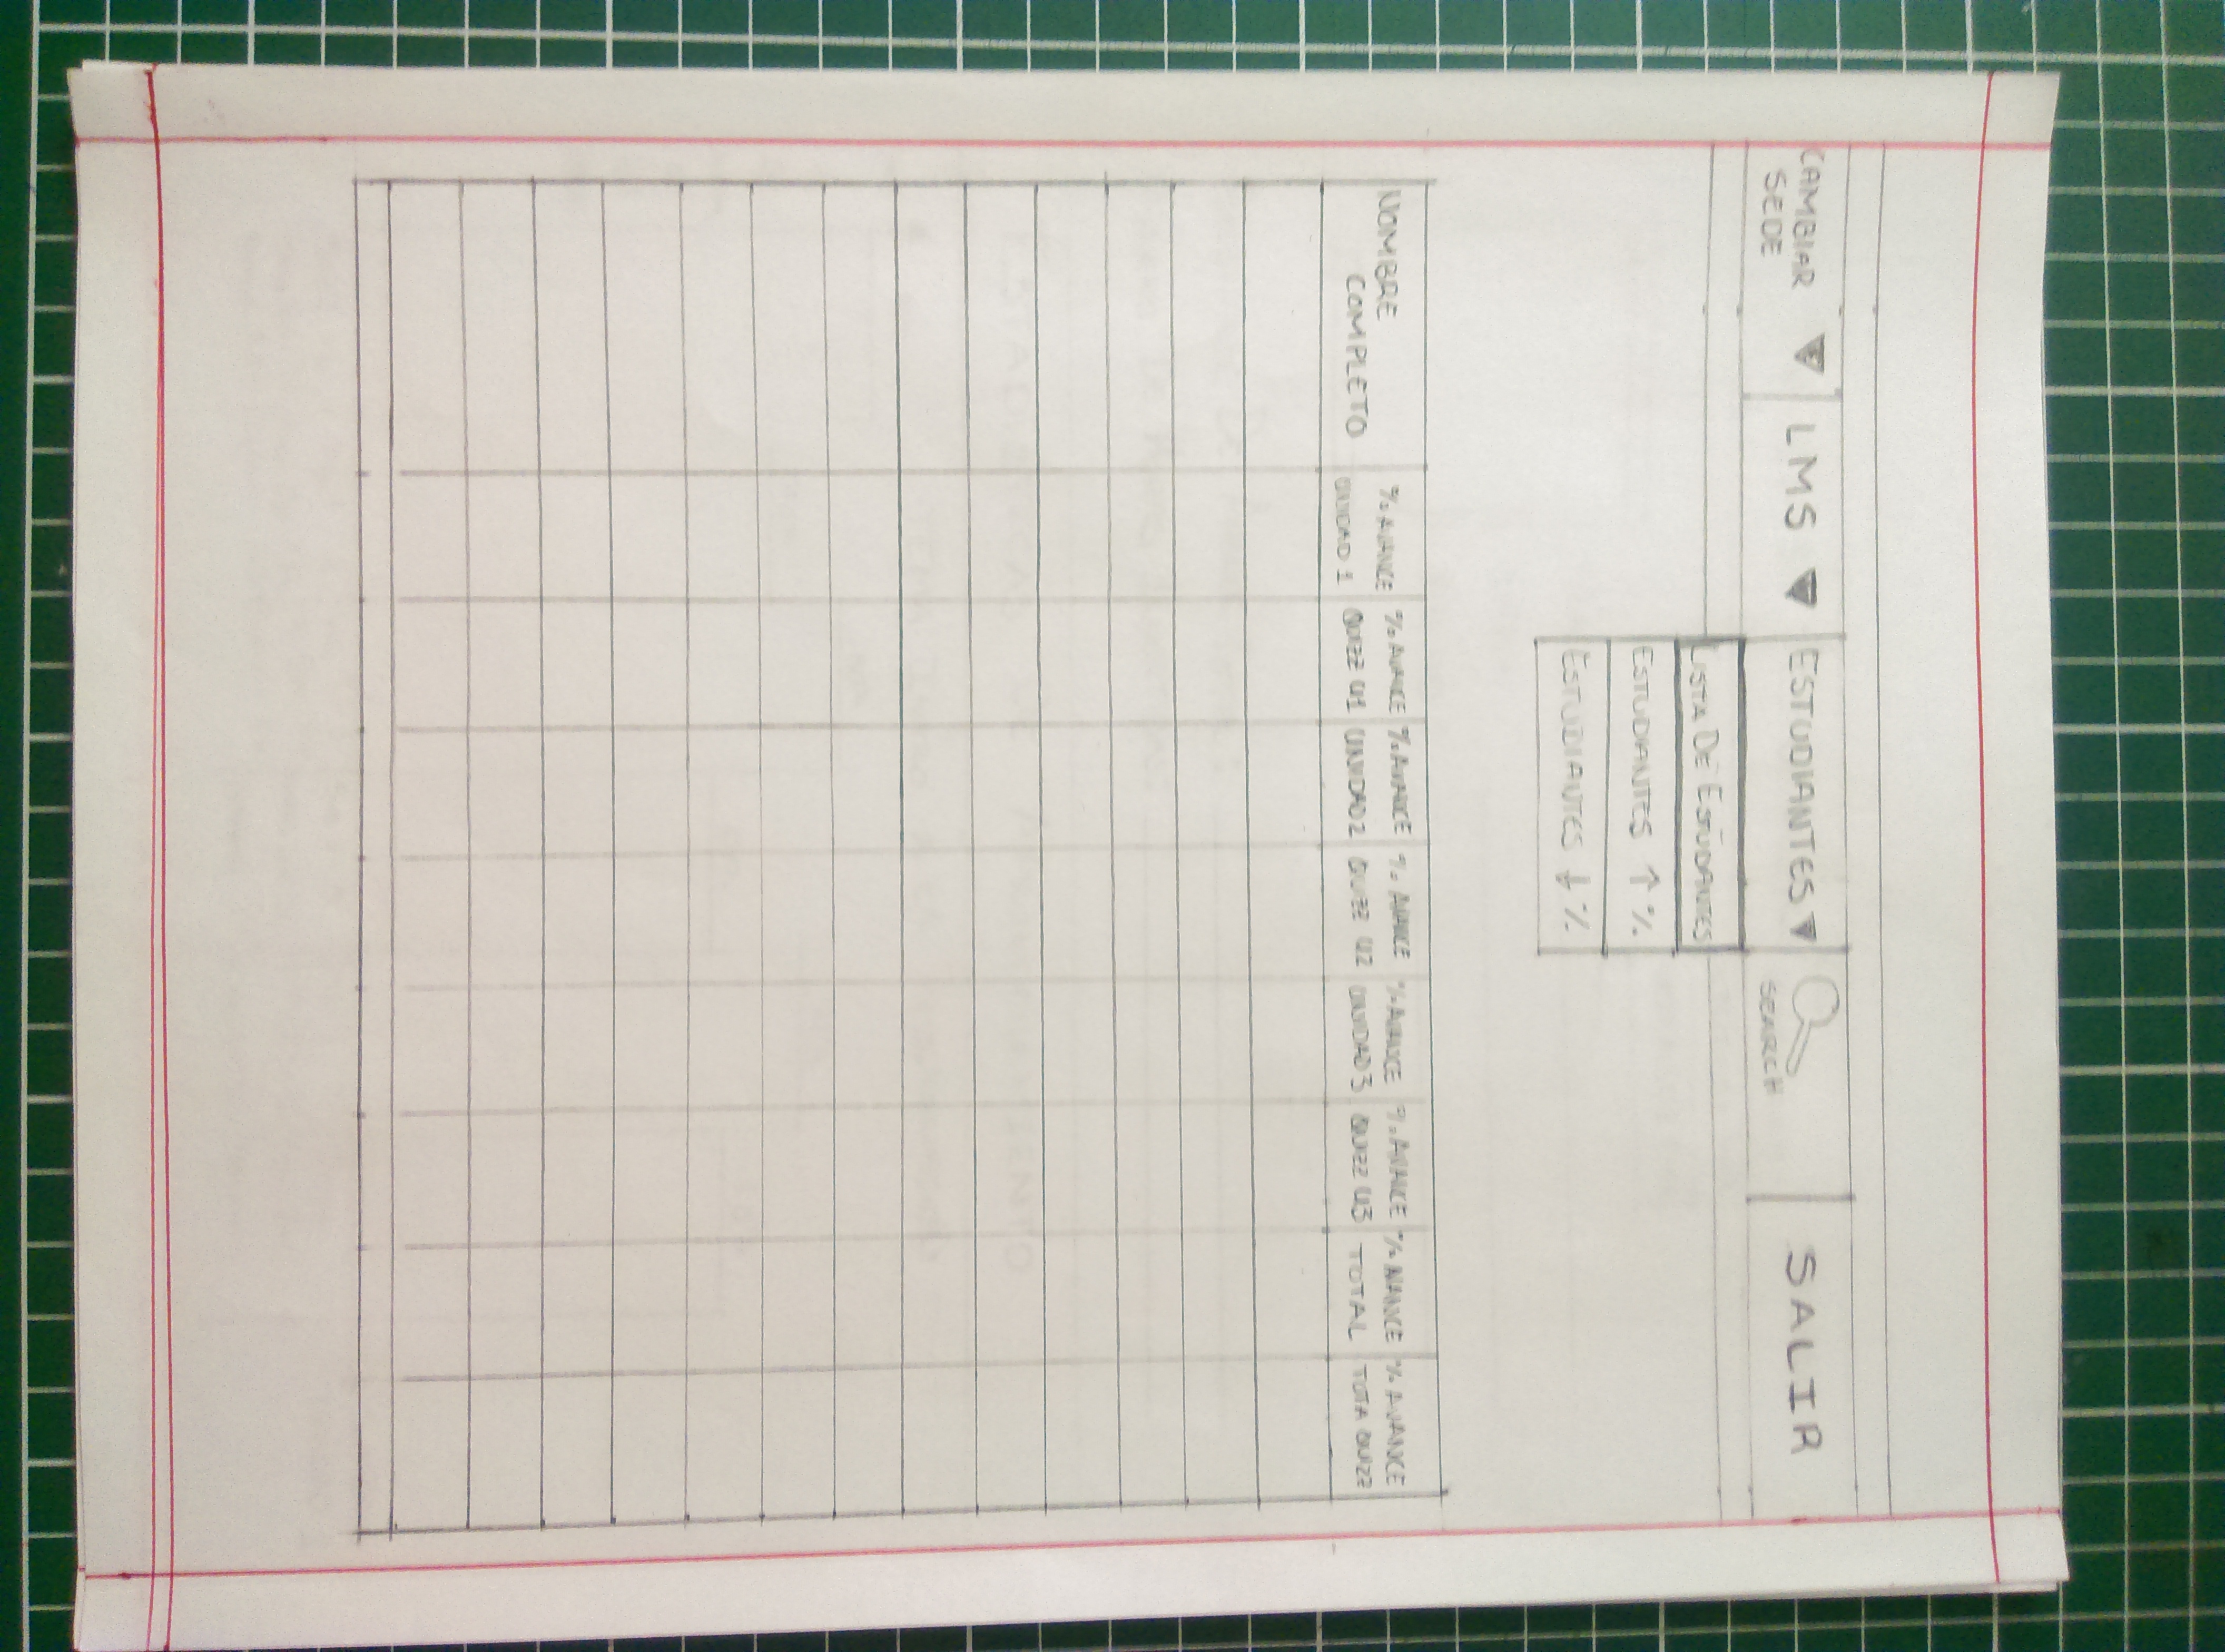 CAMBIAR
SEDE
LMS
ESTUDIANTES
SEARCH
SALIR
LISTA DE ESTUDIANTES
ESTUDIANTES ↑ %
ESTUDIANTES ↓ %
NOMBRE
COMPLETO
% AVANCE
UNIDAD 1
% AVANCE
QUIZZ U1
% AVANCE
UNIDAD 2
% AVANCE
QUIZZ U2
% AVANCE
UNIDAD 3
% AVANCE
QUIZZ U3
% AVANCE
TOTAL
% AVANCE
TOTA QUIZZ